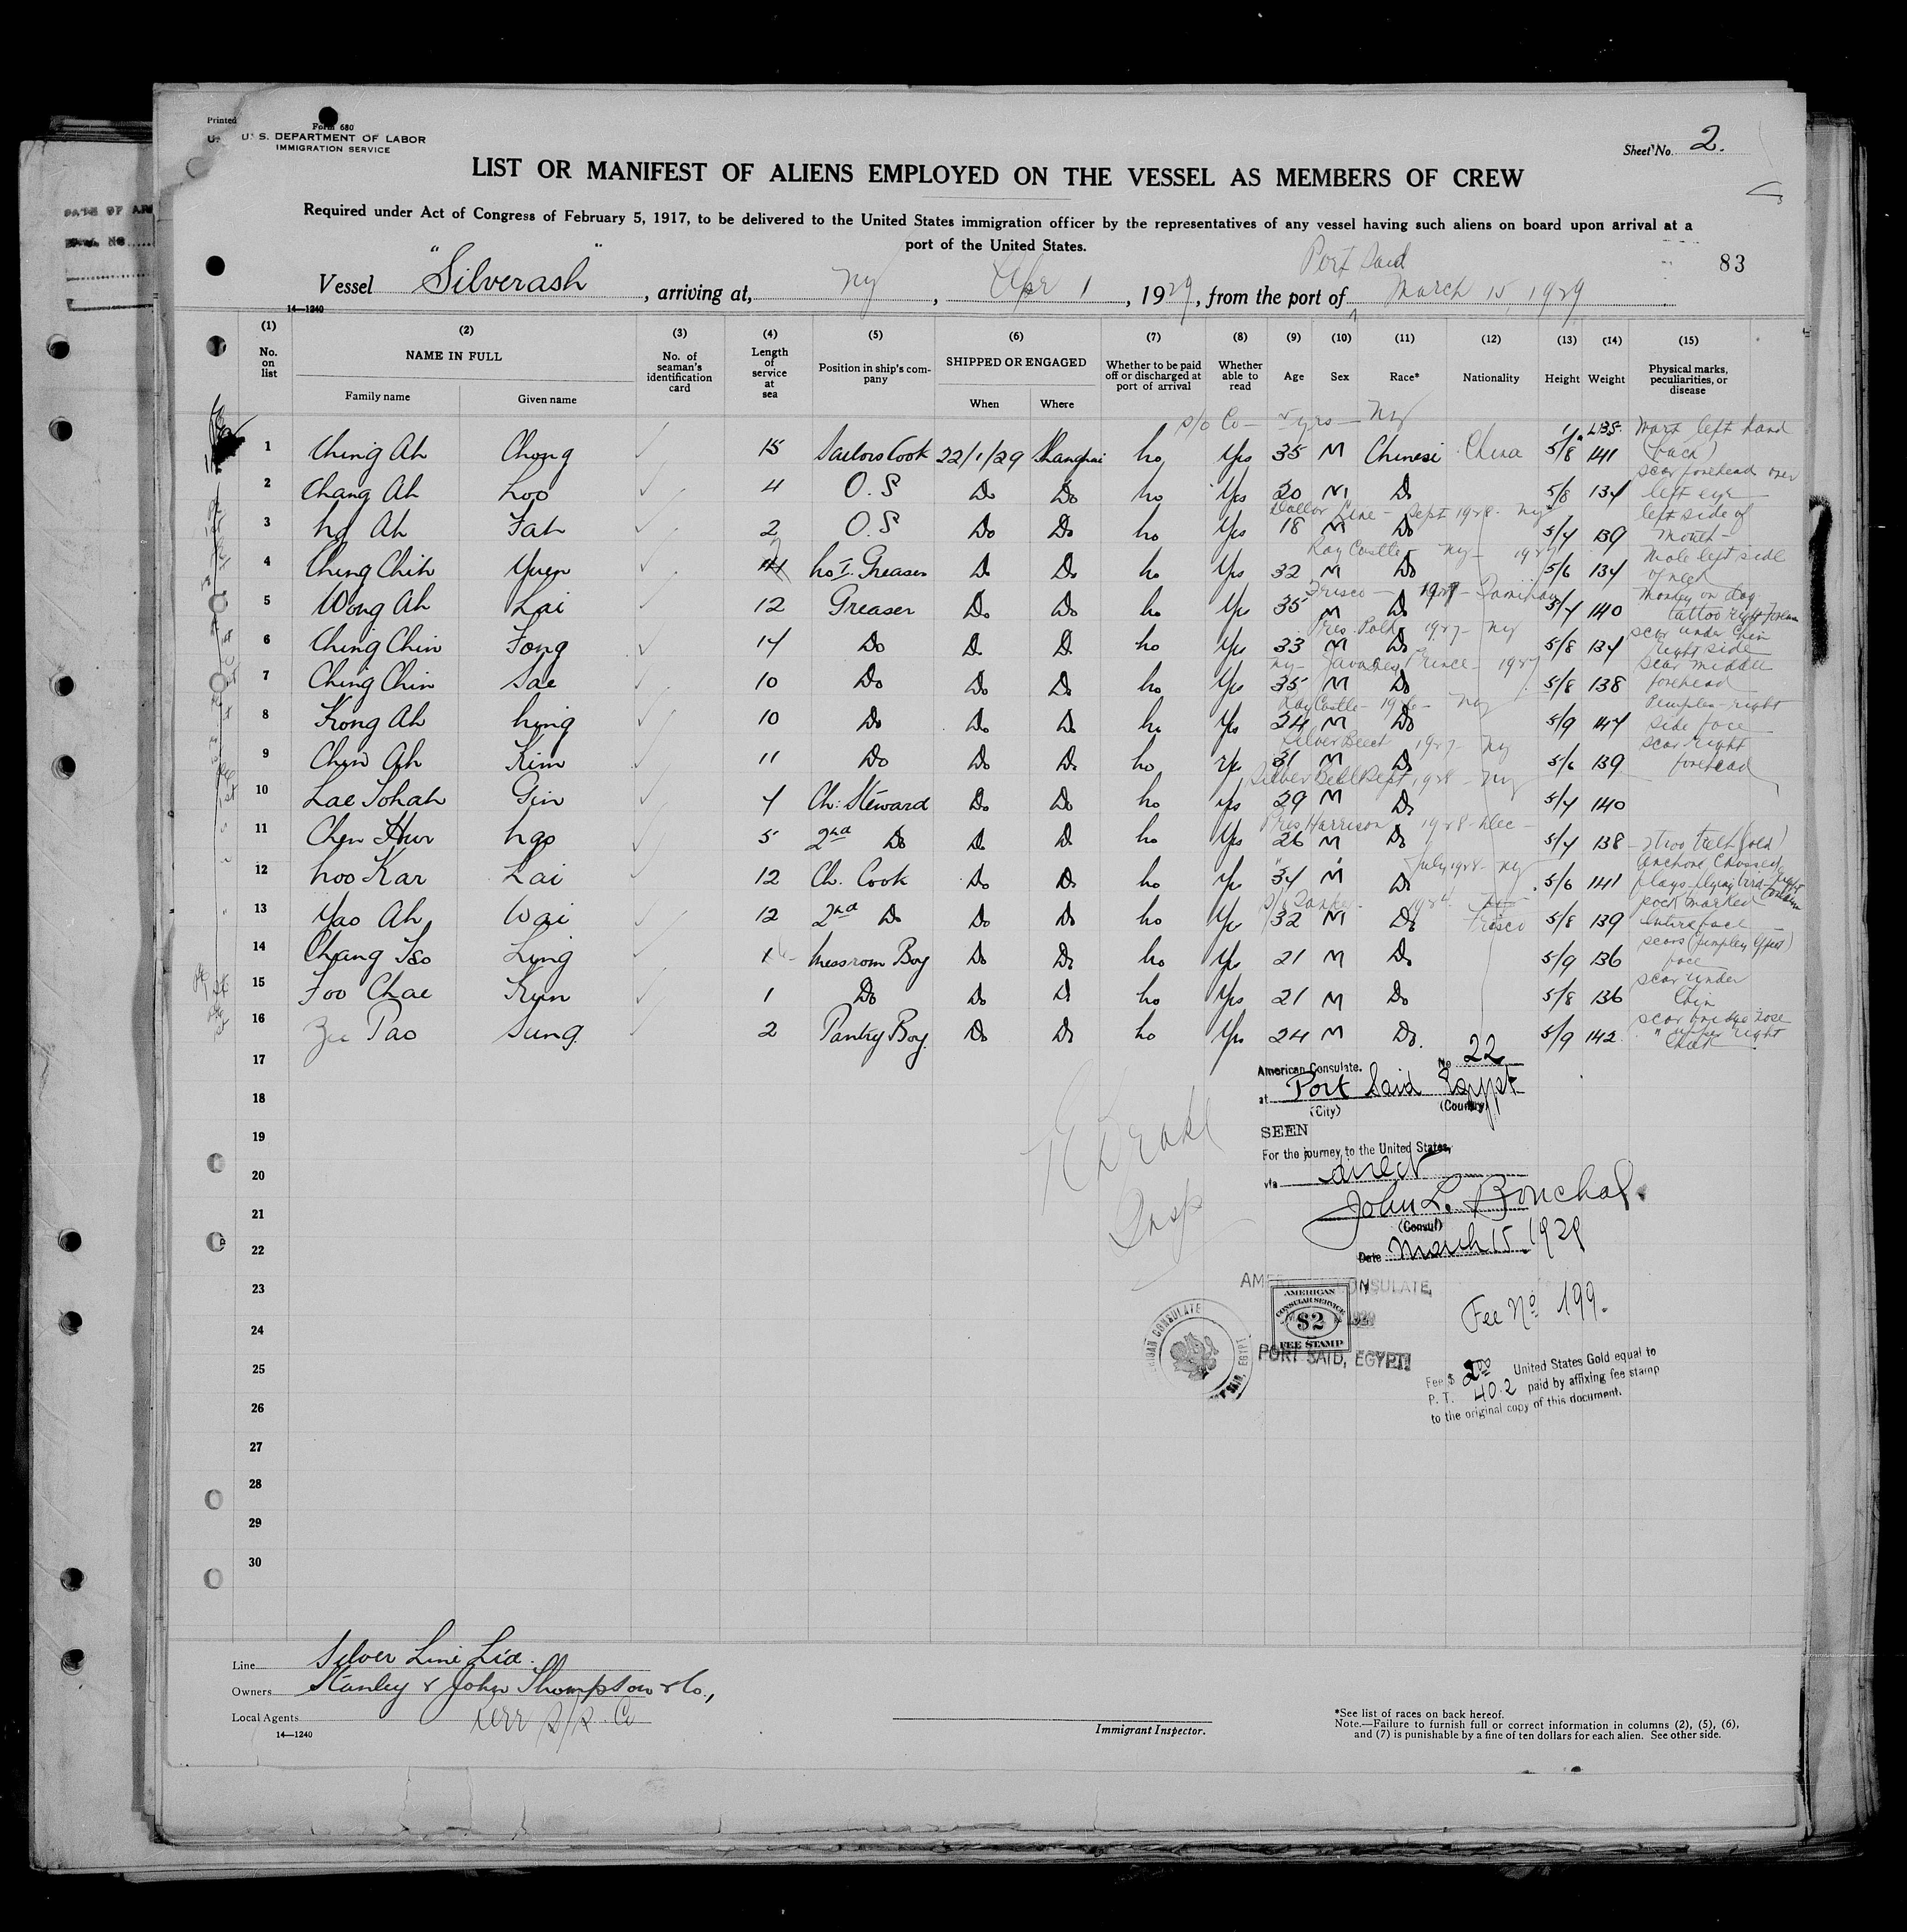 Printed
Form 680
U. S. DEPARTMENT OF LABOR
IMMIGRATION SERVICE
Sheet No. 2.
LIST OR MANIFEST OF ALIENS EMPLOYED ON THE VESSEL AS MEMBERS OF CREW
Required under Act of Congress of February 5, 1917, to be delivered to the United States immigration officer by the representatives of any vessel having such aliens on board upon arrival at a
port of the United States.
83
Port Said
Vessel "Silverash", arriving at, Ny, Apr 1, 1929, from the port of March 15, 1929
14—1240
(1) (2) (3) (4) (5) (6) (7) (8) (9) (10) (11) (12) (13) (14) (15)
No. on list NAME IN FULL No. of seaman's identification card Length of service at sea Position in ship's company SHIPPED OR ENGAGED Whether to be paid off or discharged at port of arrival Whether able to read Age Sex Race* Nationality Height Weight Physical marks, peculiarities, or disease
Family name Given name When Where
Ny
1 Ching Ah Chong 15 Sailors Cook 22/1/29 Shanghai no Yes 35 M Chinese China 5/8 141 Mark left hand (back)
2 Chang Ah Loo 4 O.S Do Do no Yes 20 M Do 5/8 134 scar forehead over left eye
Dollar Line - Sept 1928 - Ny
3 Ah Fah 2 O.S Do Do no Yes 18 M Do 5/4 139 left side of mouth
Ray Castle - Ny
4 Ching Chih Yuen no 1. Greaser Do Do no Yes 32 M Do 5/6 134 Mole left side of neck
Frisco
5 Wong Ah Lai 12 Greaser Do Do no Yes 35 M Do 5/4 140 Monkey on dog tattoo right forearm
Pres. Polk 1927 - Ny
6 Ching Chin Fong 14 Do Do Do no Yes 33 M Do 5/8 134 scar under chin right side
Ny - Javanese Prince - 1927
7 Ching Chin Sae 10 Do Do Do no Yes 35 M Do 5/8 138 scar middle forehead
Ray Castle - 1926 - Ny
8 Kong Ah hing 10 Do Do Do no Yes 24 M Do 5/9 144 Pimples - right side face
Silver Beech 1927 - Ny
9 Chin Ah Kim 11 Do Do Do no Yes 31 M Do 5/6 139 scar right forehead
Silver Bell Sept, 1928 - Ny
10 Lae Johah Gin 4 Ch: Steward Do Do no Yes 29 M Do 5/4 140
Pres Harrison 1928 - Dec -
11 Chen Hur ngo 5 2nd Do Do Do no Yes 26 M Do 5/4 138 two teeth (gold)
July 1928 - Ny
12 Loo Kar Lai 12 Ch. Cook Do Do no Yes 34 M Do 5/6 141 anchors crossed flags flying bird right forearm
1924 Frisco
13 Yao Ah Wai 12 2nd Do Do Do no Yes 32 M Do 5/8 139 pock marked entire face
14 Chang Tso Ling 1 Messroom Boy Do Do no Yes 21 M Do 5/9 136 scars face
15 Foo Chae Kun 1 Do Do Do no Yes 21 M Do 5/8 136 scar under chin
16 Zee Pao Sung 2 Pantry Boy Do Do no Yes 24 M Do. 5/9 142 scar bridge nose " upper right cheek
17
18
19
20
21
22
23
24
25
26
27
28
29
30
American Consulate. No 22
at Port Said Egypt
(City) (Country)
SEEN
For the journey to the United States,
via direct
John L. Bouchal.
(Consul)
Date March 15, 1929
Insp
AMERICAN CONSULATE,
AMERICAN CONSULAR SERVICE
$2
FEE STAMP
PORT SAID, EGYPT
Fee No 199.
Fee $ 2.00 United States Gold equal to
P. T. 40.2 paid by affixing fee stamp
to the original copy of this document.
Line Silver Line Ltd.
Owners Stanley & John Thompson & Co.,
Local Agents Kerr S/S. Co
14—1240
Immigrant Inspector.
*See list of races on back hereof.
Note.—Failure to furnish full or correct information in columns (2), (5), (6),
and (7) is punishable by a fine of ten dollars for each alien. See other side.